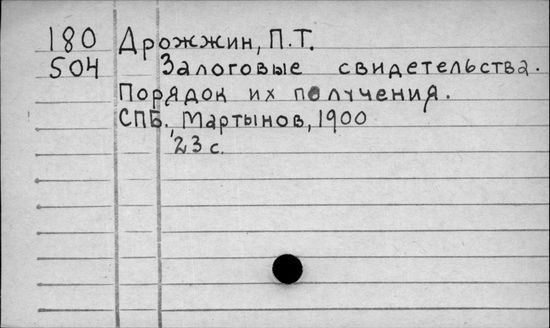 180 Дрожжин, П.Т.
504 Залоговые свидетельства.
Порядок их получения.
СПБ., Мартынов, 1900
23 с.